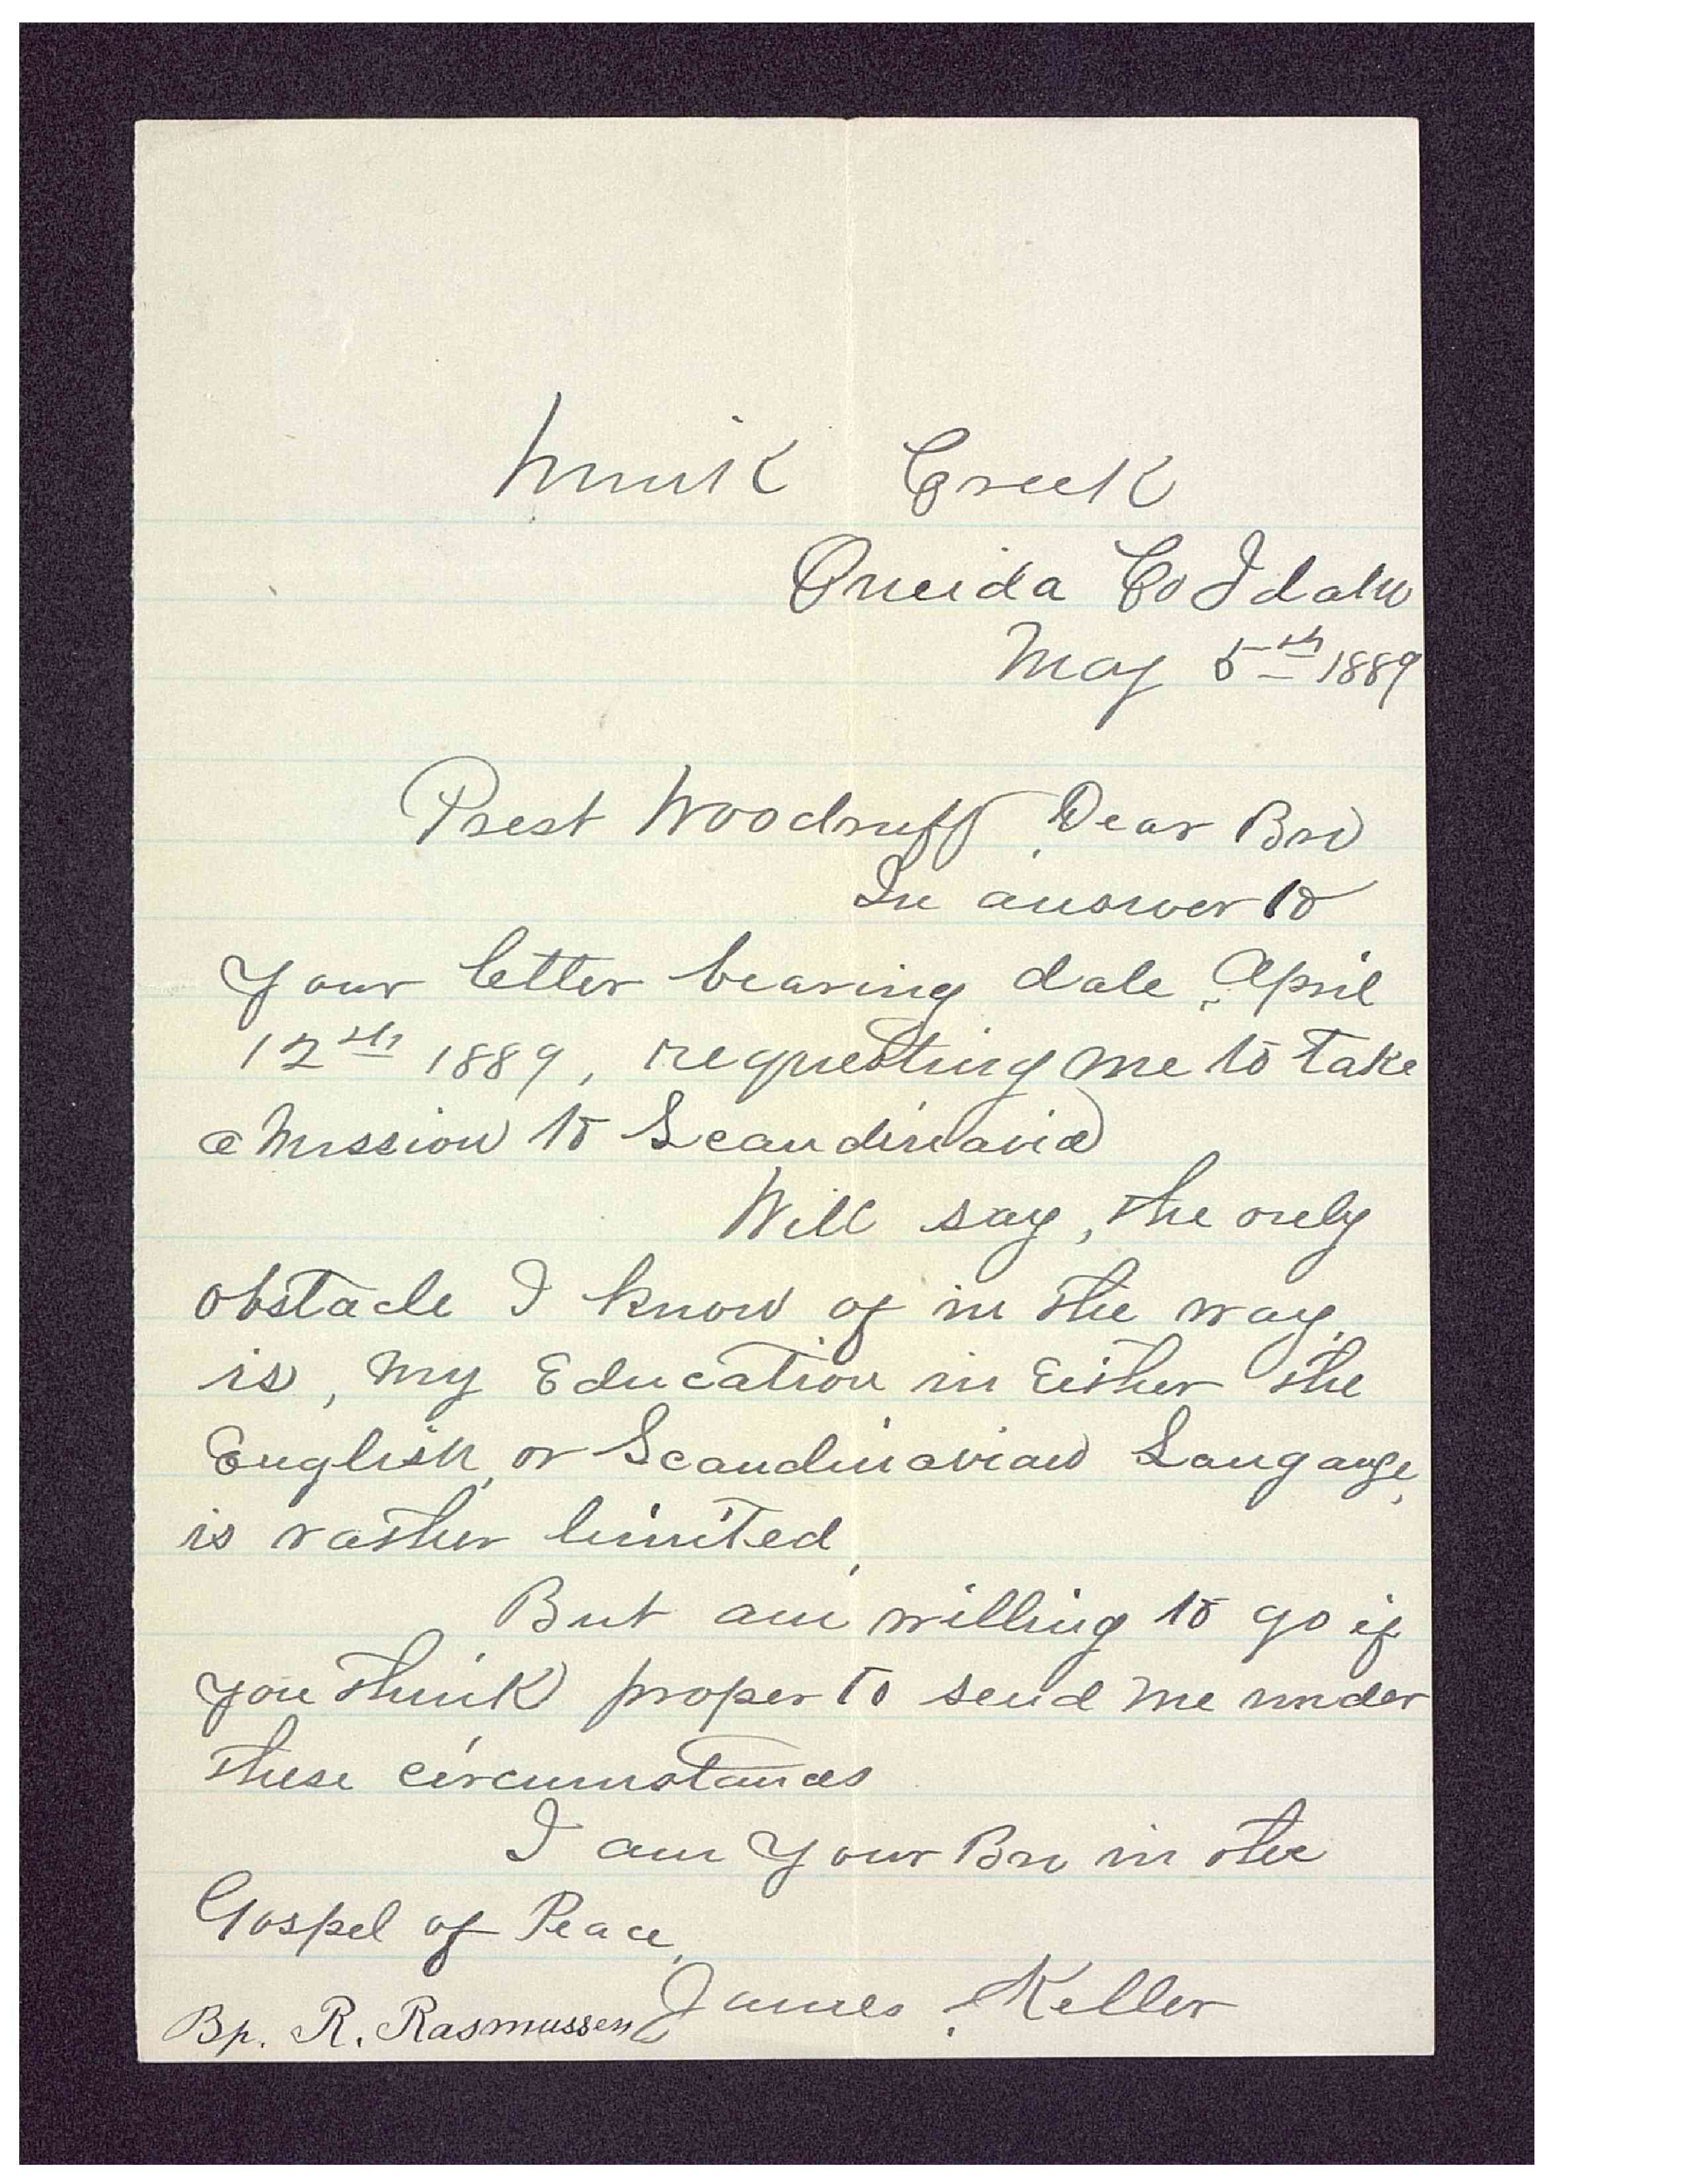 Mink Creek
Oneida Co Idaho
May 5th 1889
Prest Woodruff Dear Bro
In answer to
Your letter bearing date, April
12th 1889, requesting me to take
a Mission to Scandinavia
Will say, the only
obstacle I know of in the way
is, my Education in Either the
English, or Scandinavian Langauge,
is rather limited,
But am willing to go if
you think proper to send me under
these circumstances
I am your Bro in the
Gospel of Peace,
James Keller
Bp. R. Rasmussen